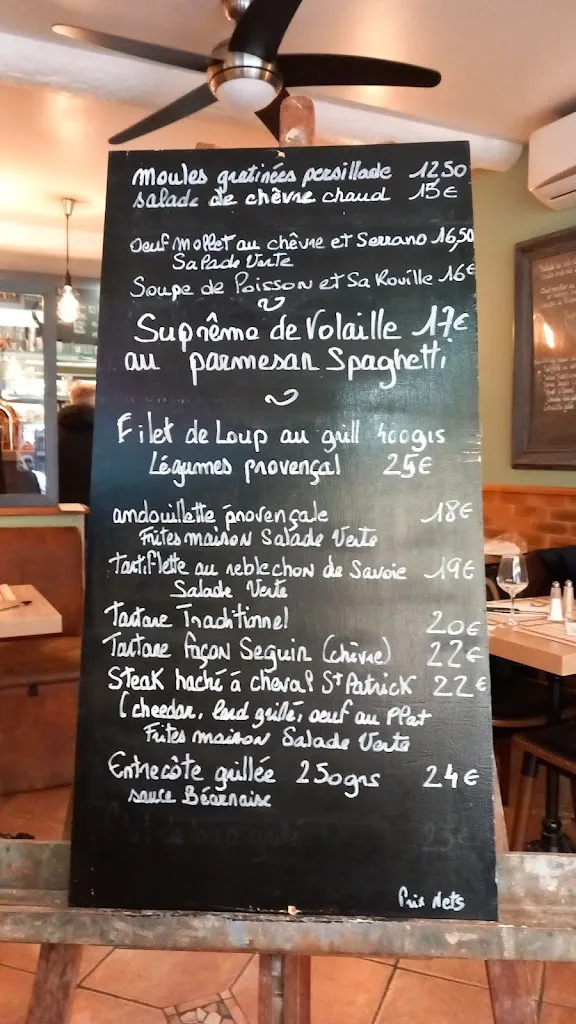 moules gratinées persillade 12.50
salade de chèvre chaud 15€
Oeuf Mollet au chèvre et Serrano 16,50
Salade Verte
Soupe de Poisson et Sa Rouille 16€
Suprême de Volaille 17€
au parmesan Spaghetti
Filet de Loup au grill 400grs
Légumes provençal 25€
andouillette provençale 18€
Frites maison Salade Verte
Tartiflette au reblechon de Savoie 19€
Salade Verte
Tartare Traditionnel 20€
Tartare façon Seguin (chèvre) 22€
Steak haché à cheval St Patrick 22€
(cheedar, lard grillé, oeuf au Plat
Frites maison Salade Verte
Entrecôte grillée 250grs 24€
sauce Béarnaise
Prix Nets